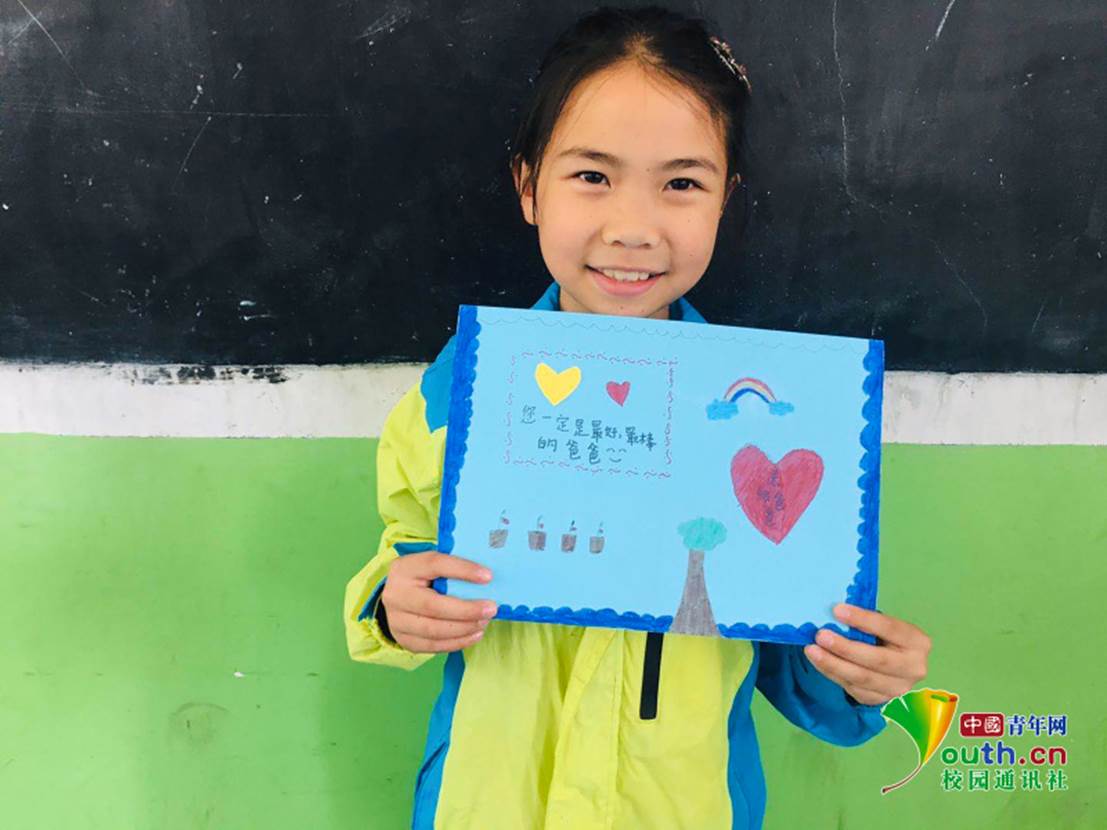 您一定是最好,最棒
的爸爸
爸
中國青年网
Youth.cn
校园通讯社